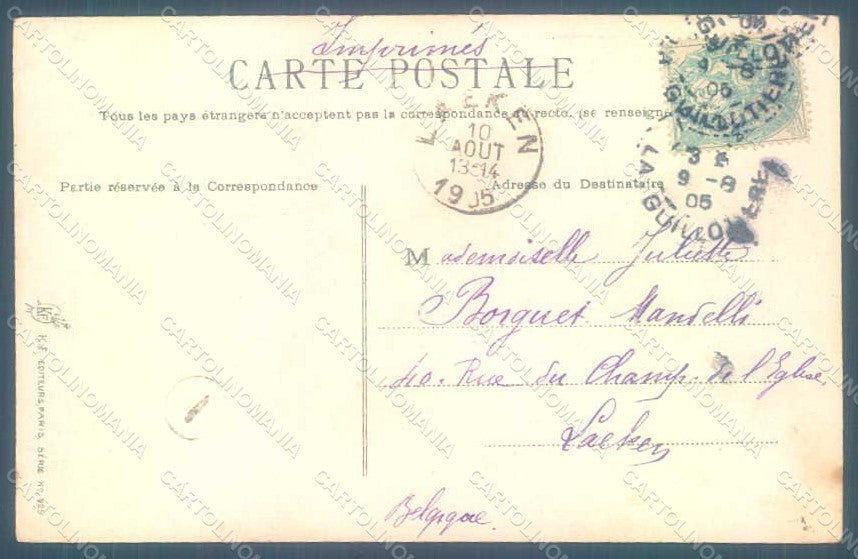 Imprimés
CARTE POSTALE
Tous les pays étrangers n'acceptent pas la correspondance au recto. (se renseigne
LAEKEN
10
AOUT
13-14
1905
LA GUILLOTIERE
9 -8
05
LA GUILLOTIERE
3
9 -8
05
Partie réservée à la Correspondance
Adresse du Destinataire
Mademoiselle Juliette
Borguet Mandelli
40. Rue du Champ de l'Eglise
Laeken
Belgique.
K.F. EDITEURS, PARIS, SÉRIE No. 925
CARTOLINOMANIA